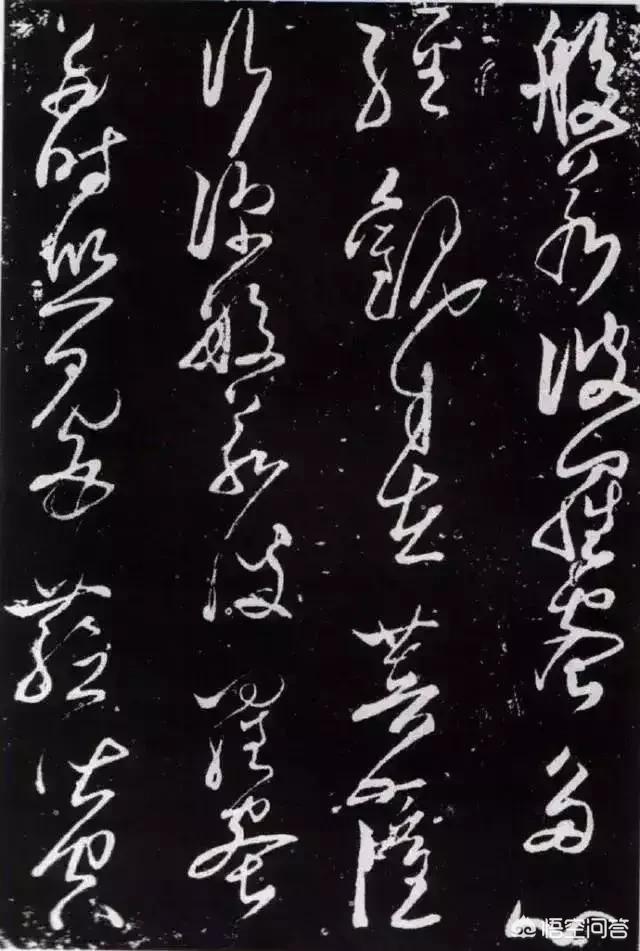 般若波羅蜜多心
經觀自在菩薩
行深般若波羅蜜
多時照見五蘊皆空
悟空问答